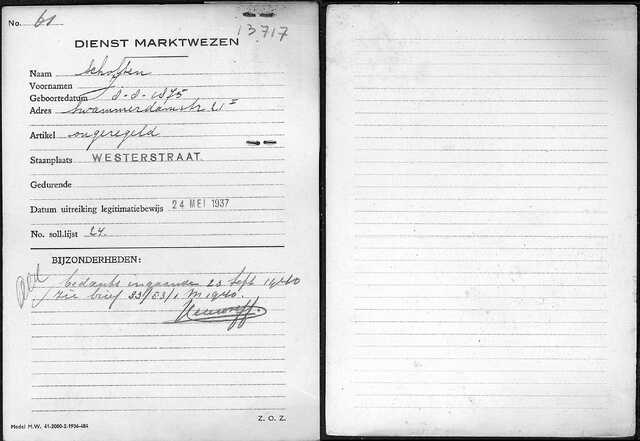 No. 61
13717
DIENST MARKTWEZEN
Naam Scholten
Voornamen J.
Geboortedatum 8-8-1875
Adres Swammerdamstr. 21 I
Artikel ongeregeld
Staanplaats WESTERSTRAAT.
Gedurende
Datum uitreiking legitimatiebewijs 24 MEI 1937
No. soll.lijst 24.
BIJZONDERHEDEN:
bedankt ingaande 23 Sept 1940
Zie brief 33/53/1 M 1940.
Model M.W. 41-2000-2-1936-484
Z. O. Z.